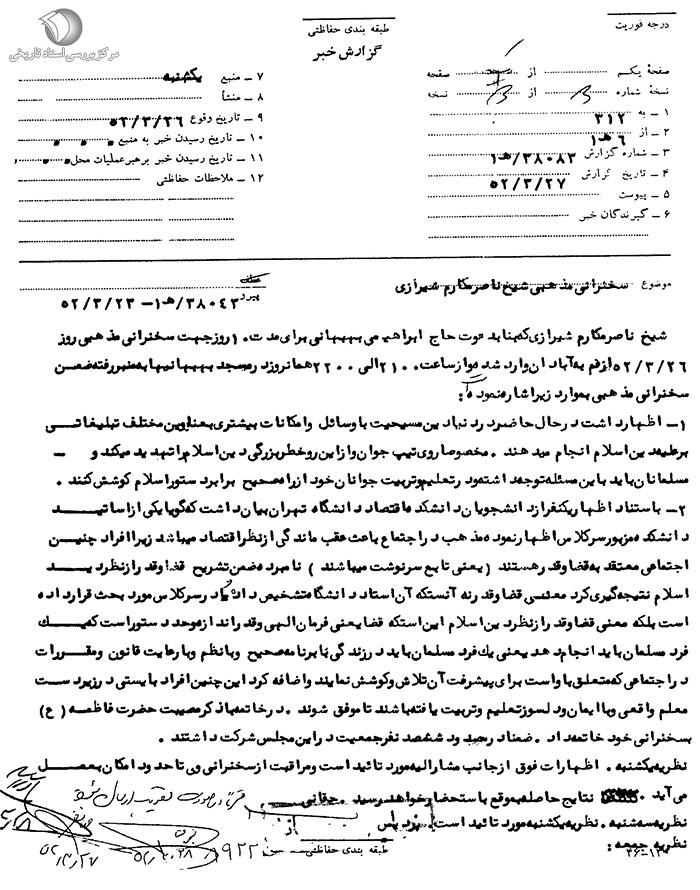 مرکز بررسی اسناد تاریخی
درجه فوریت
طبقه بندی حفاظتی
گزارش خبر
صفحهٔ یکم از صفحه
نسخهٔ شماره از نسخه
۱ ــ به ۳۱۲
۲ ــ از ۶ هـ ۱
۳ ــ شماره گزارش ۳۸۰۸۳/هـ۱
۴ ــ تاریخ گزارش ۵۲/۳/۲۷
۵ ــ پیوست
۶ ــ گیرندگان خبر
۷ ــ منبع یکشنبه
۸ ــ منشأ
۹ ــ تاریخ وقوع ۵۲/۳/۲۶
۱۰ ــ تاریخ رسیدن خبر به منبع
۱۱ ــ تاریخ رسیدن خبر برهبر عملیات محل
۱۲ ــ ملاحظات حفاظتی
موضوع سخنرانی مذهبی شیخ ناصر مکارم شیرازی
پیرو ۳۸۰۴۳/هـ۱ــ ۵۲/۳/۲۳
شیخ ناصر مکارم شیرازی که بنا بدعوت حاج ابراهیمی بهبهانی برای مدت ۱۰ روز جهت سخنرانی مذهبی روز
۵۲/۳/۲۶ از قم به آبادان وارد شده و از ساعت ۲۱۰۰ الی ۲۲۰۰ همانروز در مسجد بهبهانیها به منبر رفته ضمن
سخنرانی مذهبی بموارد زیر اشاره نموده:
۱ــ اظهار داشت در حال حاضر در دنیا دین مسیحیت با وسائل و امکانات بیشتری بعناوین مختلف تبلیغاتی
بر علیه دین اسلام انجام میدهند . مخصوصا روی تیپ جوان و از این رو خطر بزرگی دین اسلام را تهدید میکند و ــ
مسلمانان باید باین مسئله توجه داشته و در تعلیم و تربیت جوانان خود از راه صحیح برابر دستور اسلام کوشش کنند .
۲ــ با استناد اظهار یکنفر از دانشجویان دانشکده اقتصاد دانشگاه تهران بیان داشت که گویا یکی از اساتیــد
دانشکده مزبور سر کلاس اظهار نموده مذهب در اجتماع باعث عقب ماندگی از نظر اقتصاد میباشد زیرا افراد چنین
اجتماعی معتقد به قضا و قدر هستند ( یعنی تابع سرنوشت میباشند ) نامبرده ضمن تشریح قضا و قدر از نظر دیــد
اسلام نتیجه گیری کرد معنی قضا و قدر نه آنستکه آن استاد دانشگاه تشخیص داده و در سر کلاس مورد بحث قرار داده
است بلکه معنی قضا و قدر از نظر دین اسلام این استکه قضا یعنی فرمان الهی و قدر اندازه و حد دستور است که یک
فرد مسلمان باید انجام دهد یعنی یک فرد مسلمان باید در زندگی با برنامه صحیح و با نظم و با رعایت قانون و مقررات
در اجتماعی که متعلق باو است برای پیشرفت آن تلاش و کوشش نمایند و اضافه کرد این چنین افراد بایستی در زیر دست
معلم واقعی و با ایمان و دلسوز تعلیم و تربیت یافته باشند تا موفق شوند . در خاتمه با ذکر مصیبت حضرت فاطمه ( ع )
بسخنرانی خود خاتمه داد . ضمنا در حدود ششصد نفر جمعیت در این مجلس شرکت داشتند .
نظریه یکشنبه . اظهارات فوق از جانب مشارالیه مورد تائید است و مراقبت از سخنرانی وی تا حدود امکان بعمــل
می آید . نتایج حاصله بموقع باستحضار خواهد رسید . حقانی
نظریه سه شنبه . نظریه یکشنبه مورد تائید است .
نظریه جمعه :
طبقه بندی حفاظتی
۵۲/۳/۲۸
۵۲/۳/۲۷